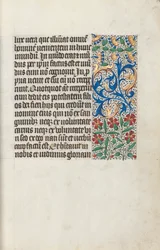 lux vera que illuminat omnem
hominem venientem in hunc
mundum. In mundo erat et mun
dus per ipsum factus est et mun
dus eum non cognovit. In p
pria venit et sui eum non rece
perunt. Quotquot autem receperunt
eum dedit eis potestatem fili
os dei fieri his qui credunt in
nomine eius qui non ex san
guinibus neque ex voluntate
carnis neque ex voluntate viri
sed ex deo nati sunt. Et ver
bum caro factum est et habitavit in
nobis et vidimus gloriam